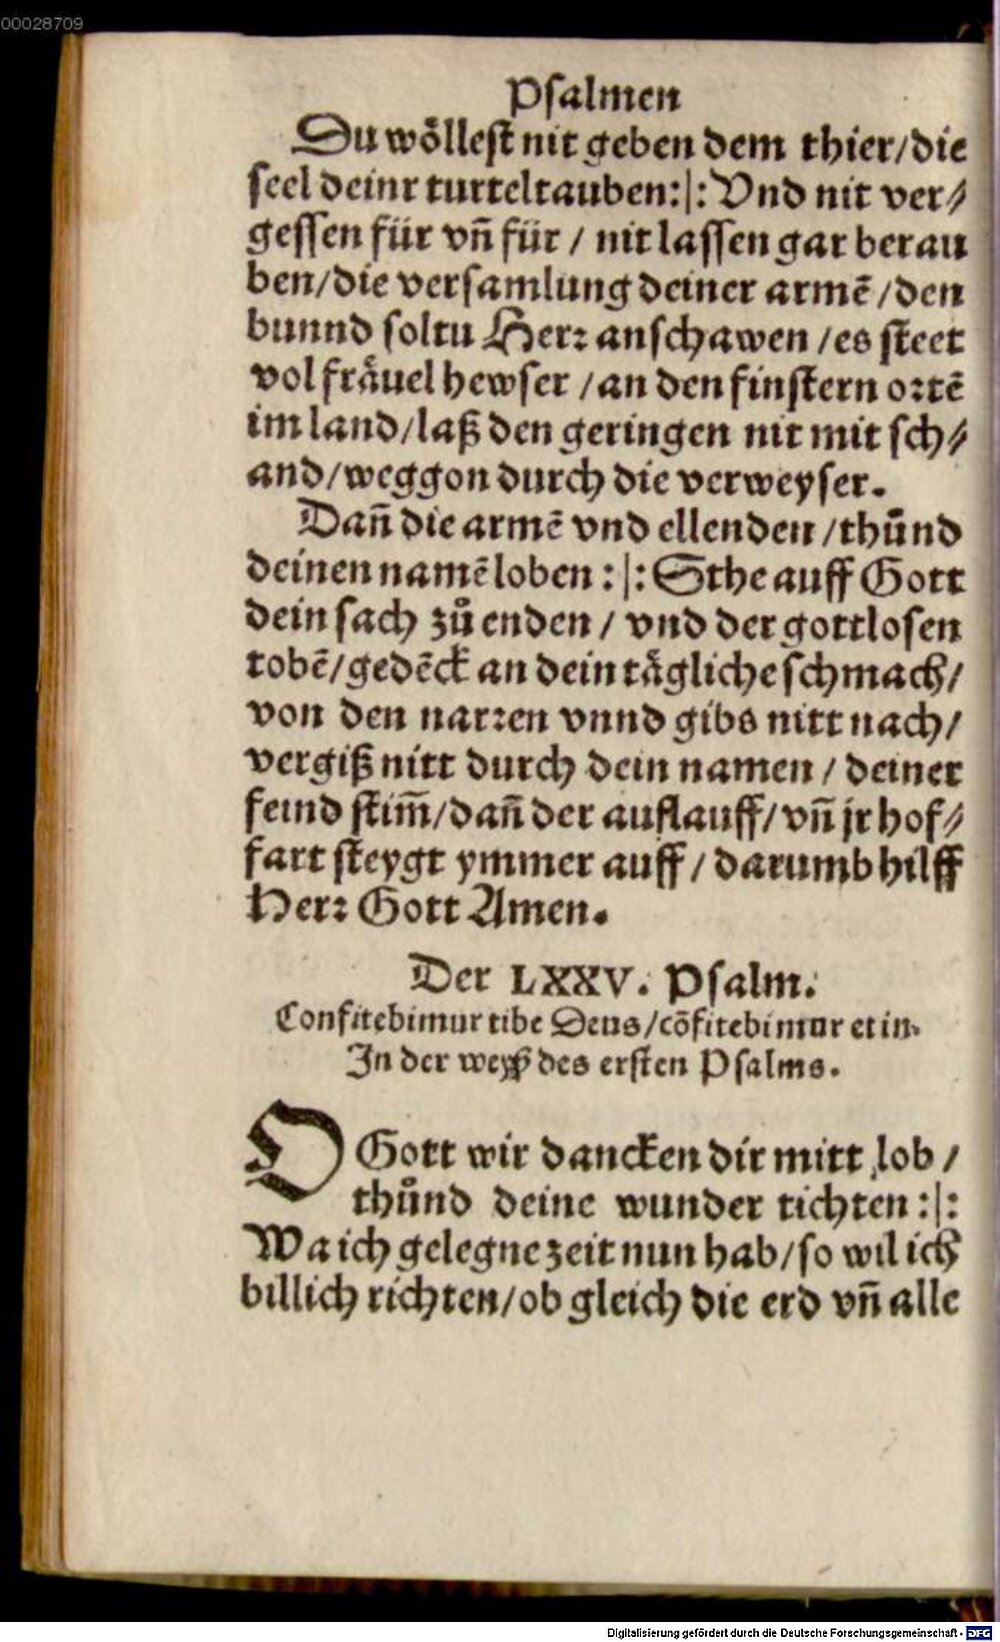 00028709
Psalmen
Du wöllest nit geben dem thier/die
seel deinr turteltauben:|: Vnd nit ver⸗
gessen für vn̄ für / nit lassen gar berau
ben/die versamlung deiner armē /den
bunnd soltu Herr anschawen /es steet
vol fräuel hewser /an den finstern ortē
im land/laß den geringen nit mit sch⸗
and/weggon durch die verweyser.
Dan̄ die armē vnd ellenden /thůnd
deinen namē loben :|: Sthe auff Gott
dein sach zů enden / vnd der gottlosen
tobē/gedēck an dein tägliche schmach/
von den narren vnnd gibs nitt nach/
vergiß nitt durch dein namen / deiner
feind stim̄/dan̄ der auflauff/vn̄ jr hof⸗
fart steygt ymmer auff / darumb hilff
Herr Gott Amen.
Der LXXV. Psalm.
Confitebimur tibe Deus/cōfitebimur et in.
In der weyß des ersten Psalms.
O Gott wir dancken dir mitt lob /
thůnd deine wunder tichten :|:
Wa ich gelegne zeit nun hab/so wil ich
billich richten/ob gleich die erd vn̄ alle
Digitalisierung gefördert durch die Deutsche Forschungsgemeinschaft - DFG